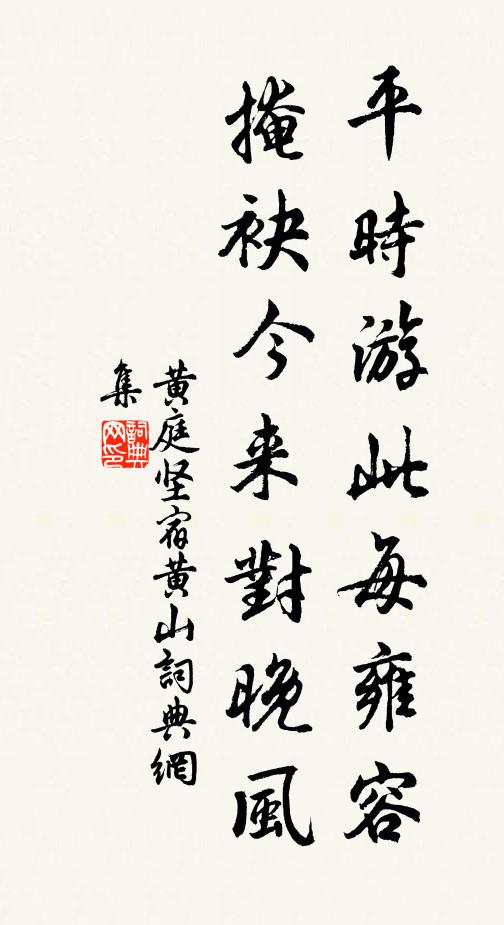 平時游此每雍容
掩袂今来對晚風
黄庭坚宿黄山詞典網
集
詞典网印